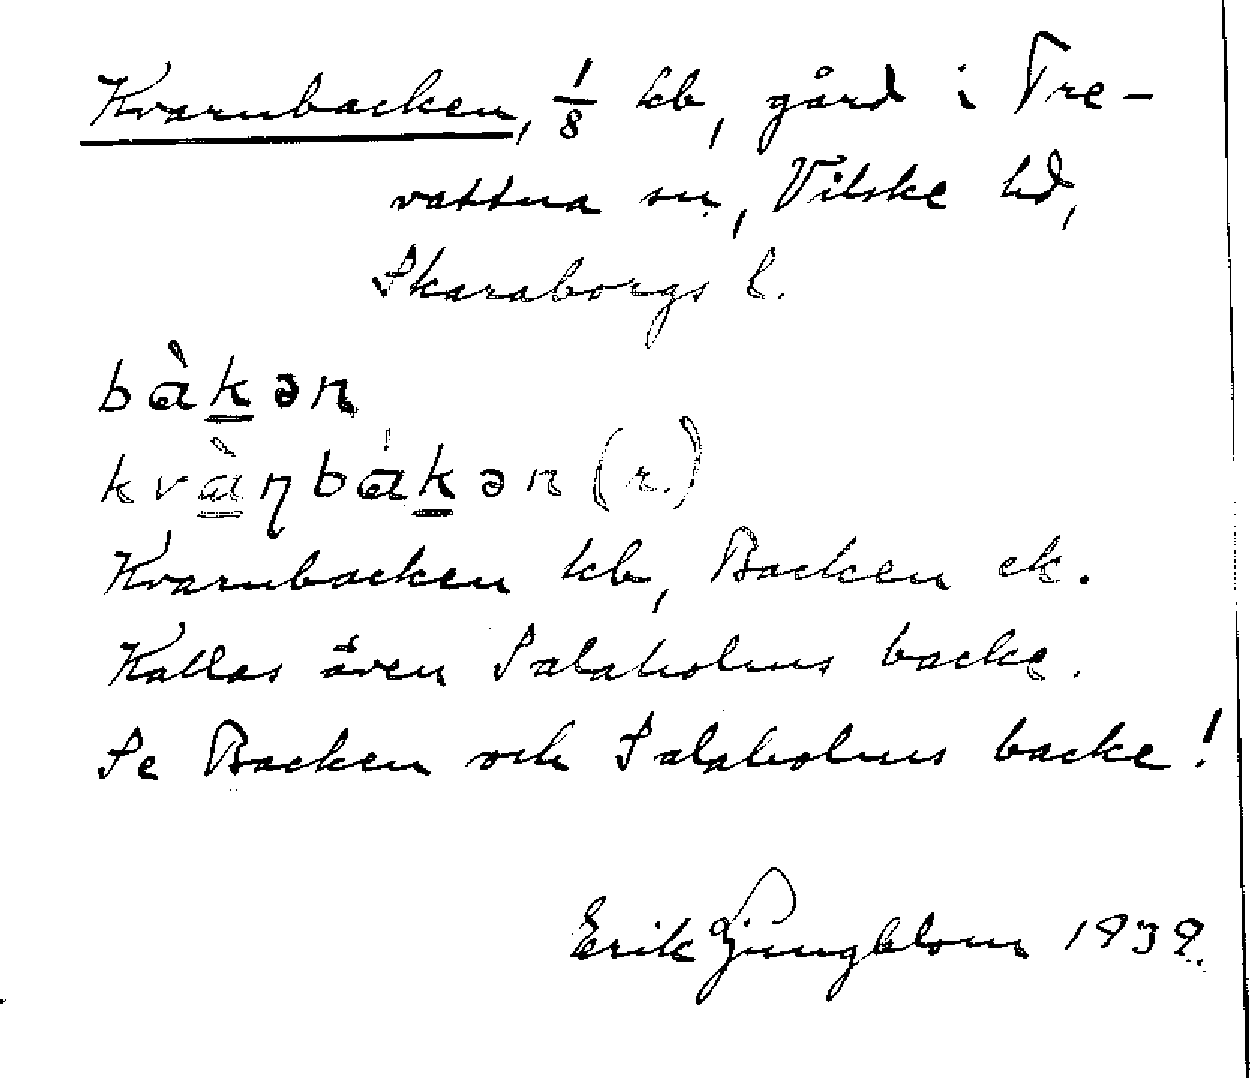 Kvarnbacken, 1/8 kb, gård i Tre-
vattna sn, Vilske hd,
Skaraborgs l.
bàkən
kvàŋbákən (r.)
Kvarnbacken kb, Backen ek.
Kallas även Salaholms backe.
Se Backen och Salaholms backe!
Erik Ljungblom 1939.